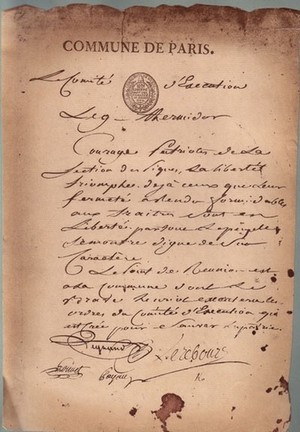 COMMUNE DE PARIS.
Le Comité d'Execution
Le 9 thermidor
Courage Patriotes de La
Section des Piques, La liberté
triomphe. deja ceux que leur
fermeté a rendu formidables
aux traitres sont en
Liberté partout Le peuple
se montre digne de Son
Caractere
Le point de Reunion est
a la Commune dont Le
brave henriot executera les
ordres du Comité d'Execution qui
est créé pour sauver la patrie.
Legrand
Lerebours
Payan